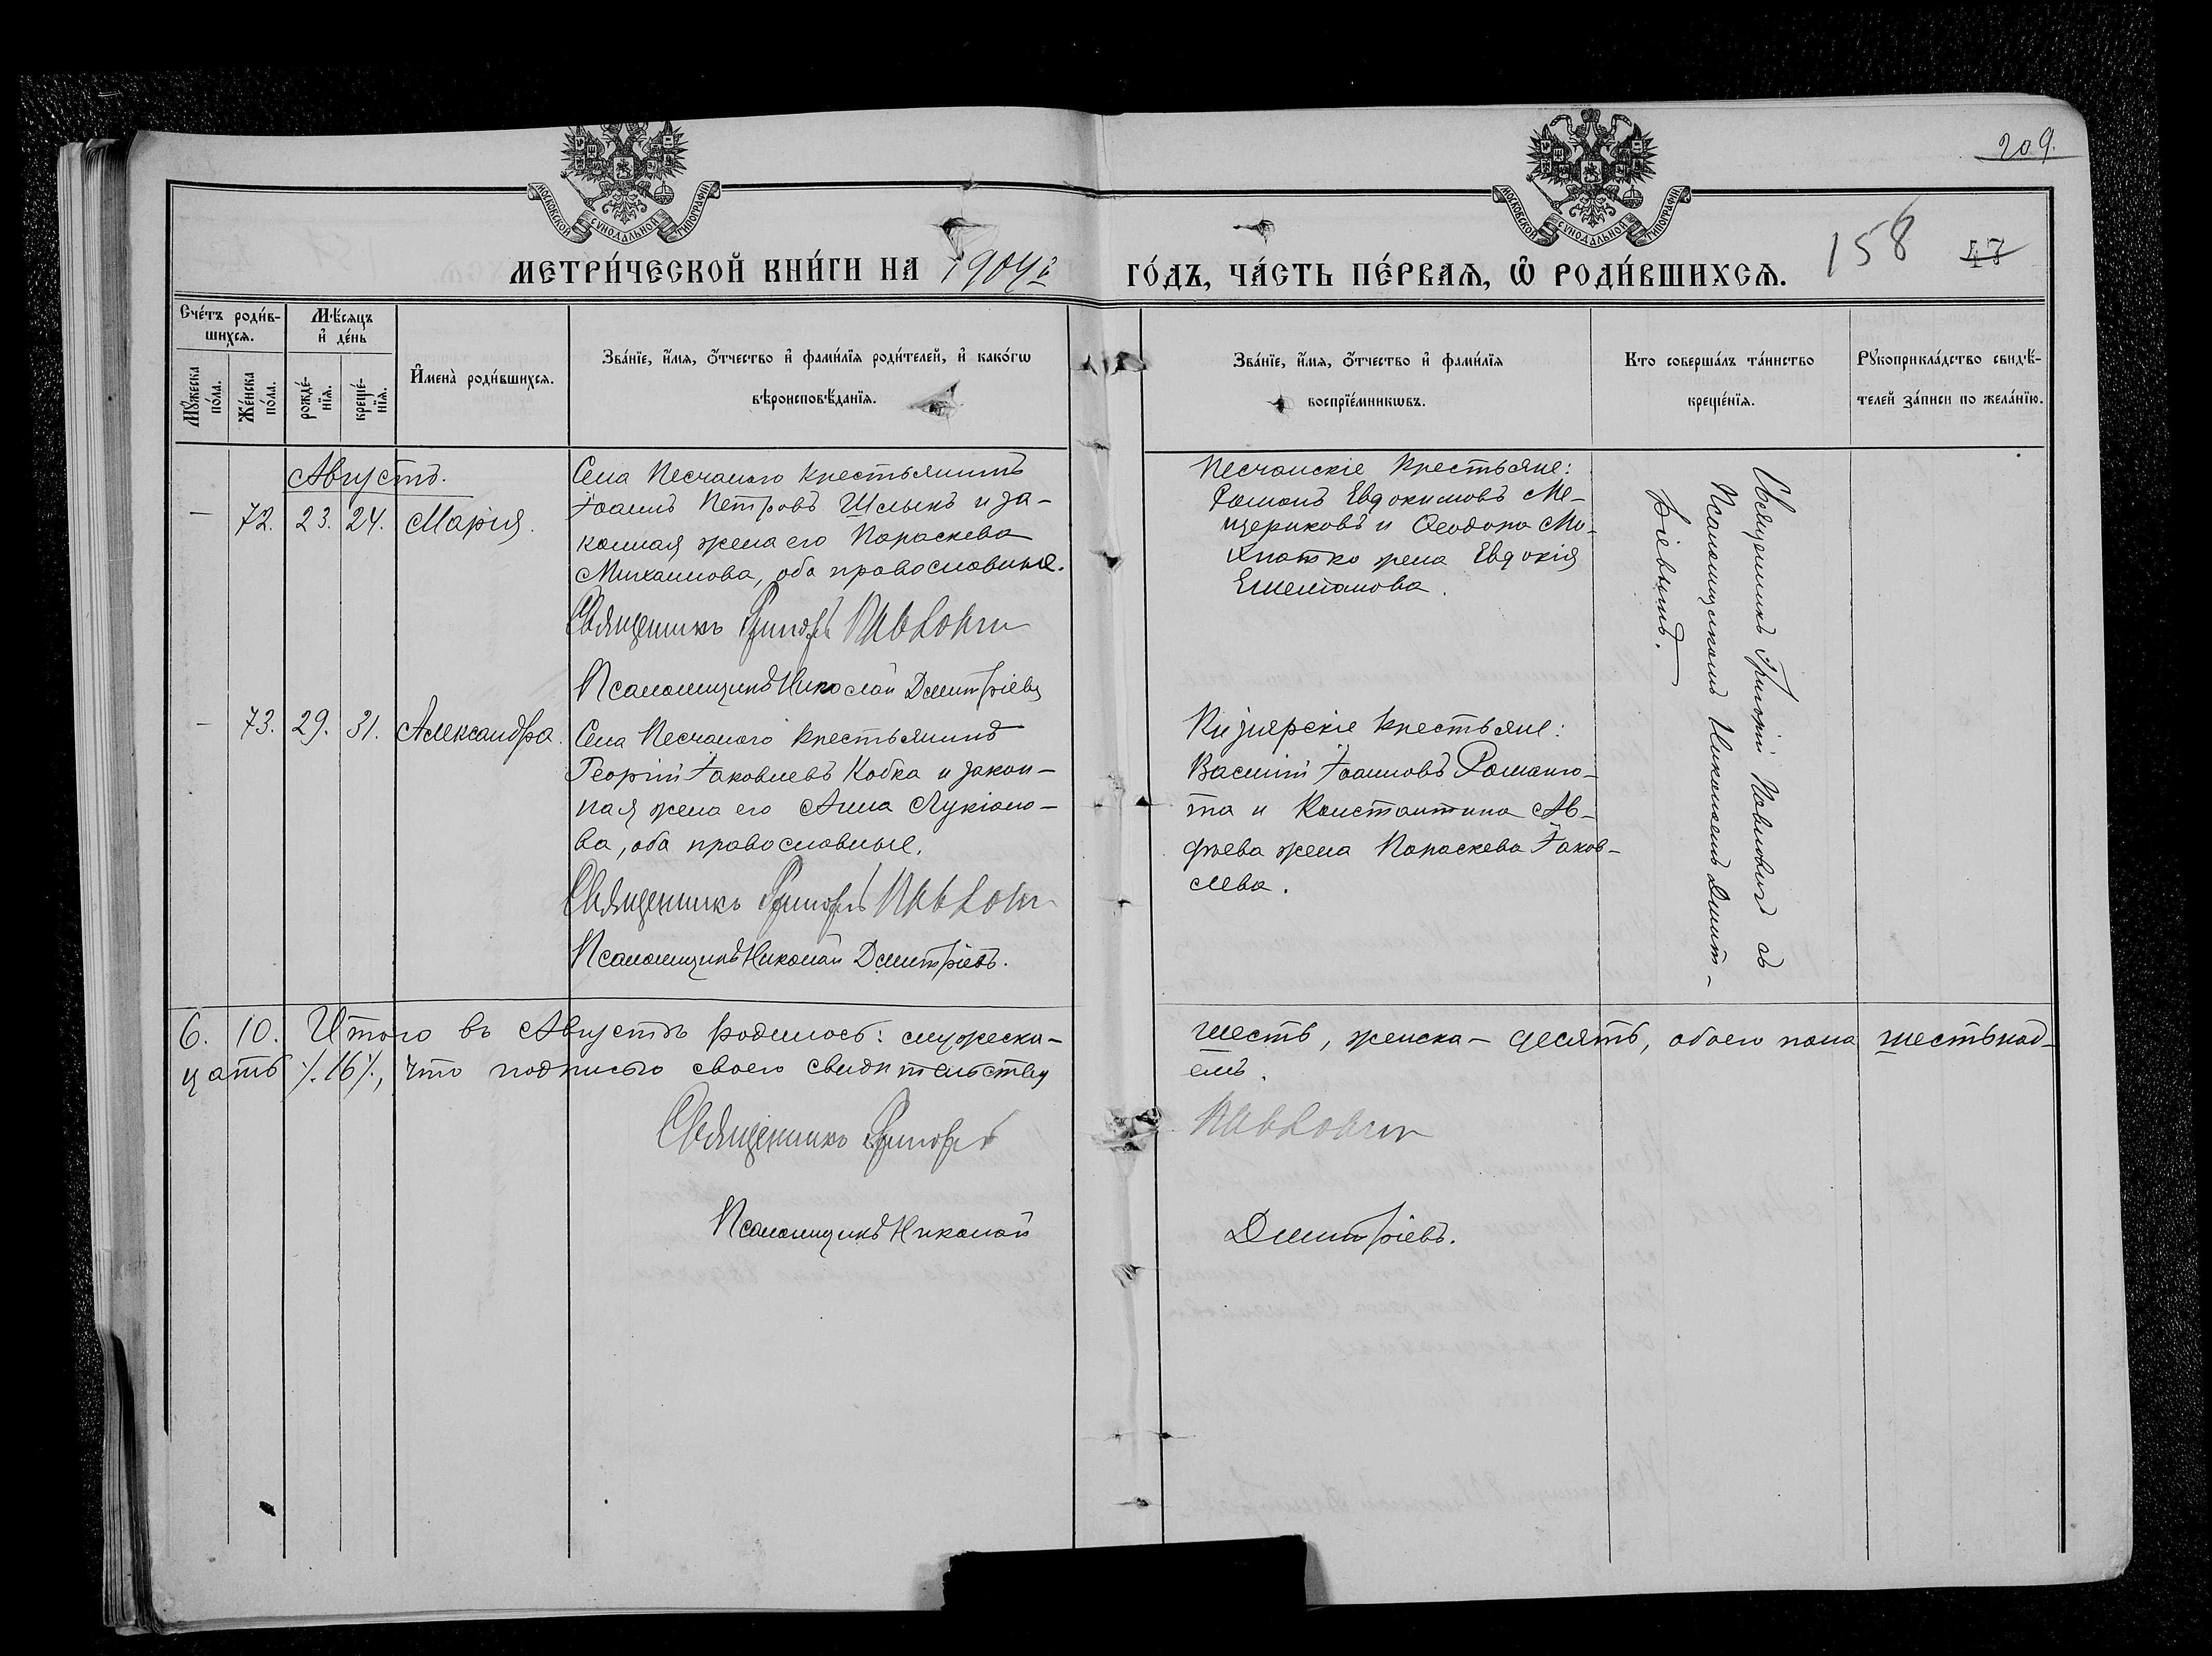 209.
МОСКОВСКОЙ СУНОДАЛЬНОЙ ТИПОГРАФІИ
МОСКОВСКОЙ СУНОДАЛЬНОЙ ТИПОГРАФІИ
МЕТРИ́ЧЕСКОЙ КНИ́ГИ НА 1904й
ГО́ДЪ, ЧА́СТЬ ПЕ́РВАѦ, Ѿ РОДИ́ВШИХСѦ.
158 47
Сче́тъ роди́в-
шихсѧ.
Мꙋ́жеска по́ла.
Же́нска по́ла.
Мѣ́сяцъ
и҆ де́нь
рожде́-
нїѧ.
креще́-
нїѧ.
И҆мена̀ роди́вшихсѧ.
Зва́нїе, и҆́мѧ, ѻ҆́тчество и҆ фами́лїѧ роди́телей, и҆ како́гѡ
вѣроисповѣ́данїѧ.
Зва́нїе, и҆́мѧ, ѻ҆́тчество и҆ фами́лїѧ
воспрїе́мникѡвъ.
Кто соверша́лъ та́инство
креще́нїѧ.
Рꙋкоприкла́дство свидѣ́-
телей за́писи по жела́нїю.
Августъ.
— 72. 23. 24. Марія.
Села Песчаного крестьянинъ
Іоаннъ Петровъ Шлыкъ и за-
конная жена его Параскева
Михаилова, оба православные.
Священникъ Григорій Павлович
Псаломщикъ Николай Дмитріевъ
Песчанскіе крестьяне:
Романъ Евдокимовъ Ме-
щериковъ и Ѳеодора Мо-
хнатко жена Евдокія
Емеліанова.
Священникъ Григорій Павловичъ съ
Псаломщикомъ Николаемъ Дмит-
ріевымъ.
— 73. 29. 31. Александра.
Села Песчаного крестьянинъ
Георгій Іаковлевъ Кобка и закон-
ная жена его Анна Лукіано-
ва, оба православные.
Священникъ Григорій Павлович
Псаломщикъ Николай Дмитріевъ.
Кизіярскіе крестьяне:
Василій Іоанновъ Романю-
та и Константина Ав-
фіева жена Параскева Іаков-
лева.
6. 10. Итого въ Августѣ родилось: мужеска-
шесть, женска- десять, обоего пола шестьнад-
цать /.16/., что подписью своею свидѣтельству
емъ.
Священникъ Григорій
Павлович
Псаломщикъ Николай
Дмитріевъ.